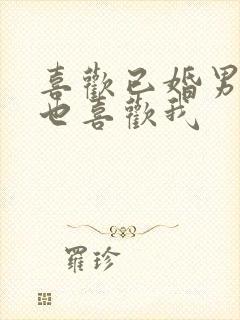 喜歡已婚男
也喜歡我
羅珍